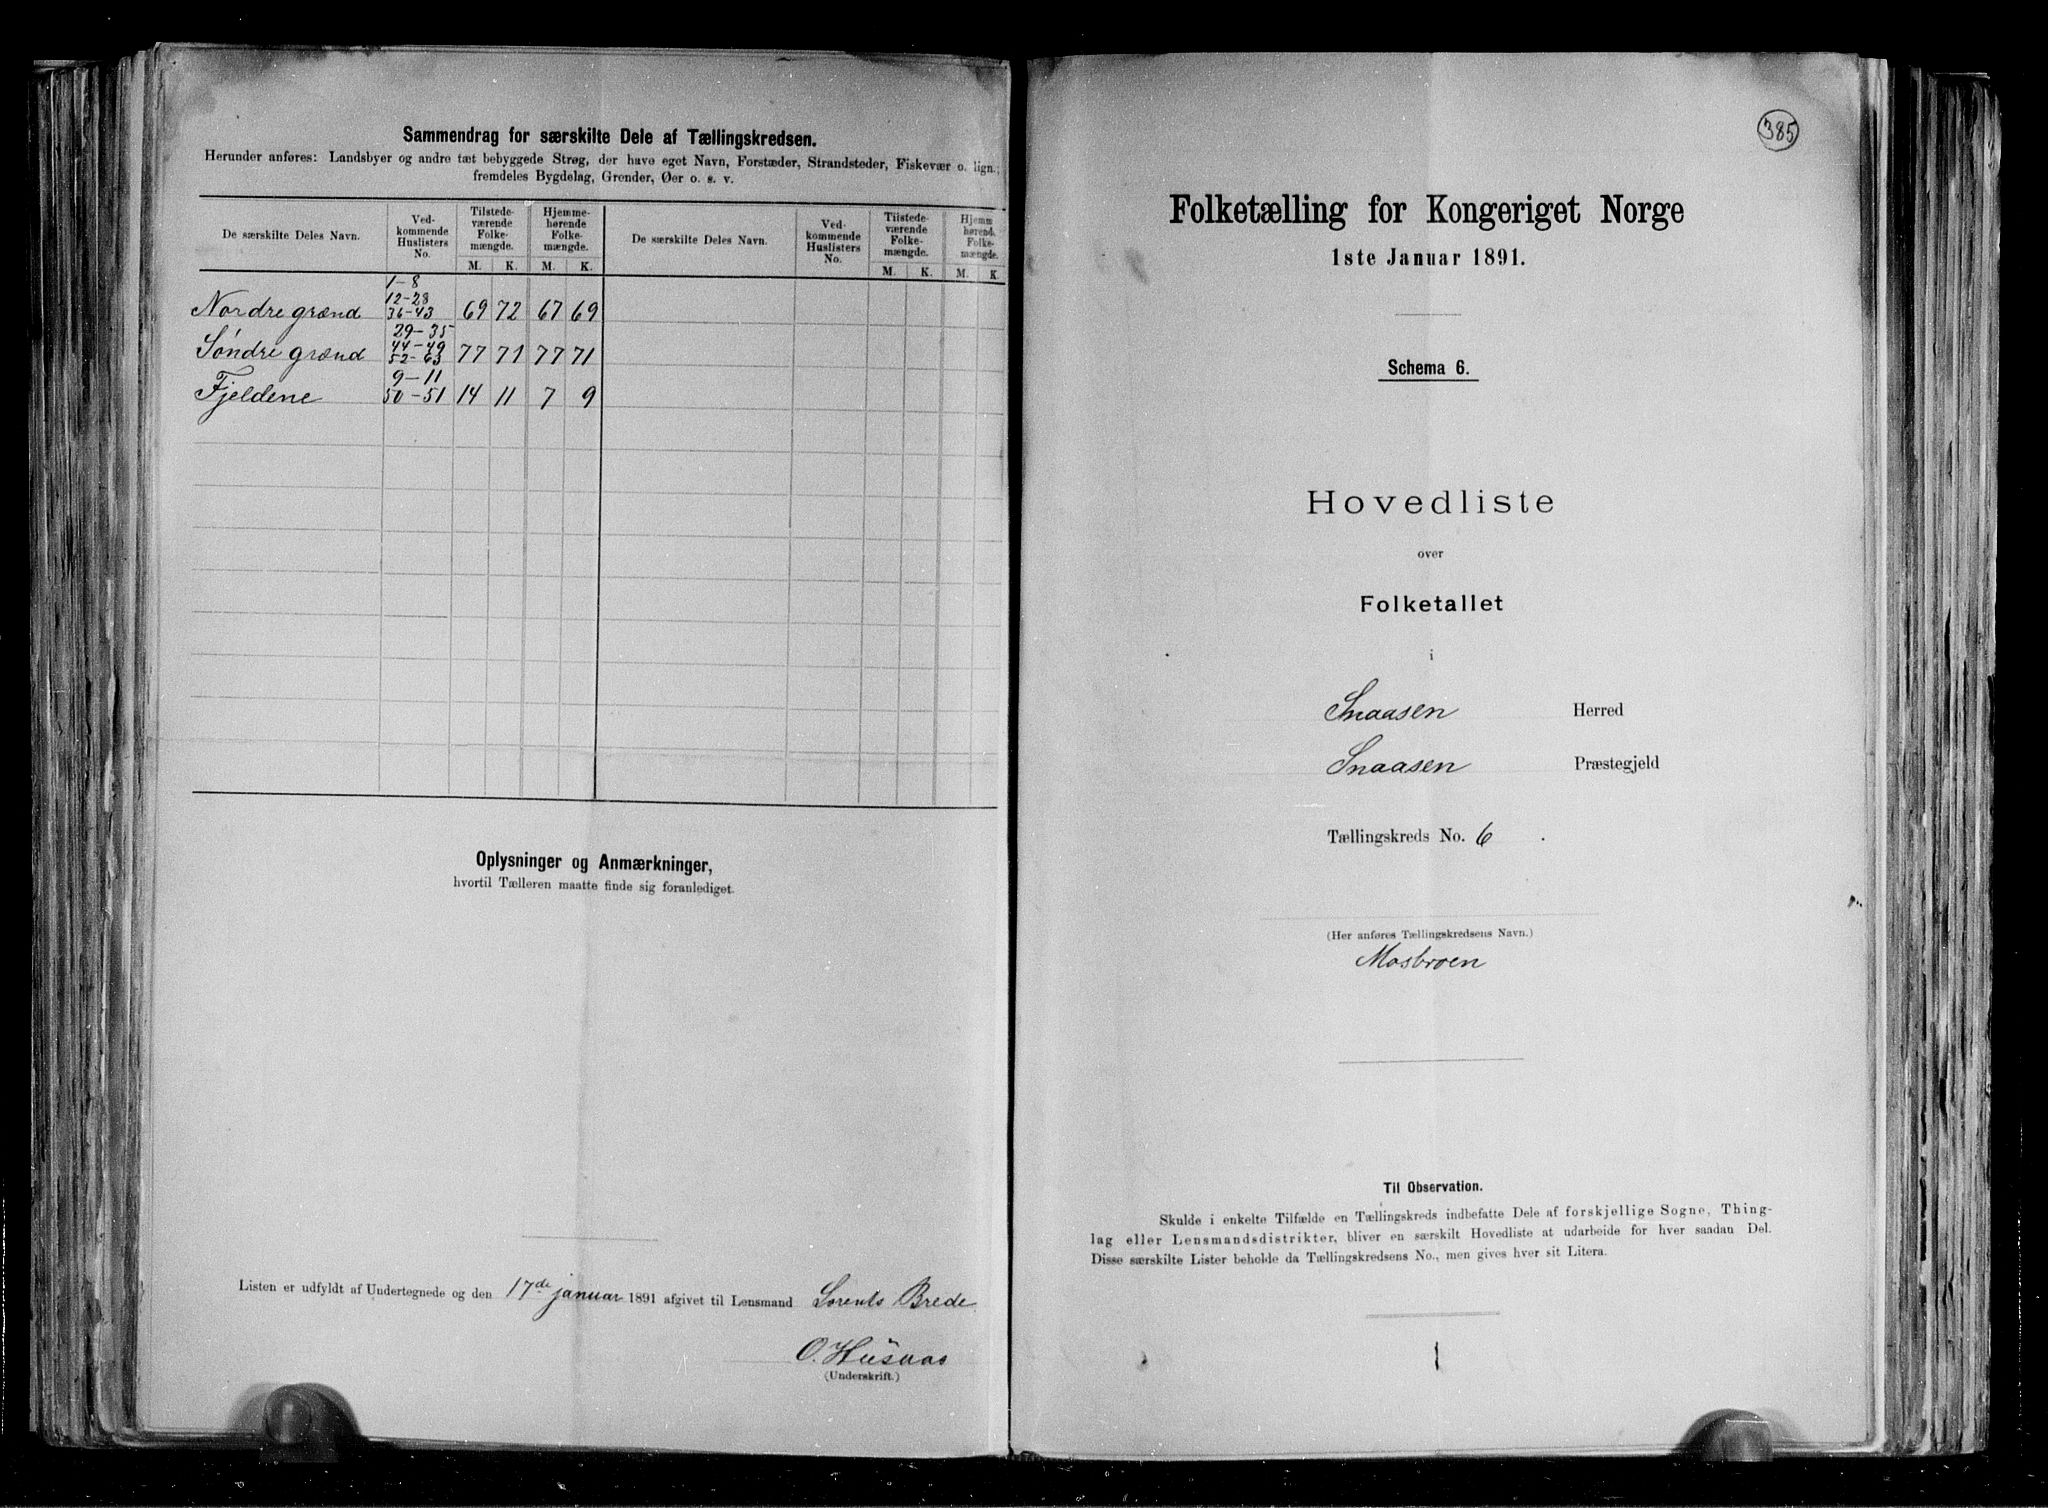 Sammendrag for særskilte Dele af Tællingskredsen.
Herunder anføres: Landsbyer og andre tæt bebyggede Strøg, der have eget Navn, Forstæder, Strandsteder, Fiskevær o. lign.;
fremdeles Bygdelag, Grender, Øer o. s. v.
De særskilte Deles Navn.
Ved-
kommende
Huslisters
No.
Tilstede-
værende
Folke-
mængde.
Hjemme-
hørende
Folke-
mængde.
De særskilte Deles Navn.
Ved-
kommende
Huslisters
No.
Tilstede-
værende
Folke-
mængde.
Hjemm
hørend.
Folke-
mængde.
M. K. M. K. M. K. M. K.
1-8
12-28
Nordre grænd 36-43 69 72 67 69
29-35
44-49
Søndre grænd 52-63 77 71 77 71
9-11
Fjeldene 50-51 14 11 7 9
Oplysninger og Anmærkninger,
hvortil Tælleren maatte finde sig foranlediget.
Listen er udfyldt af Undertegnede og den 17de januar 1891 afgivet til Lensmand Lorents Brede
O. Hüsaas
(Underskrift.)
385
Folketælling for Kongeriget Norge
1ste Januar 1891.
Schema 6.
Hovedliste
over
Folketallet
i
Snaasen Herred
Snaasen Præstegjeld
Tællingskreds No. 6
(Her anføres Tællingskredsens Navn.)
Mosbroen
Til Observation.
Skulde i enkelte Tilfælde en Tællingskreds indbefatte Dele af forskjellige Sogne, Thing-
lag eller Lensmandsdistrikter, bliver en særskilt Hovedliste at udarbeide for hver saadan Del.
Disse særskilte Lister beholde da Tællingskredsens No., men gives hver sit Litera.